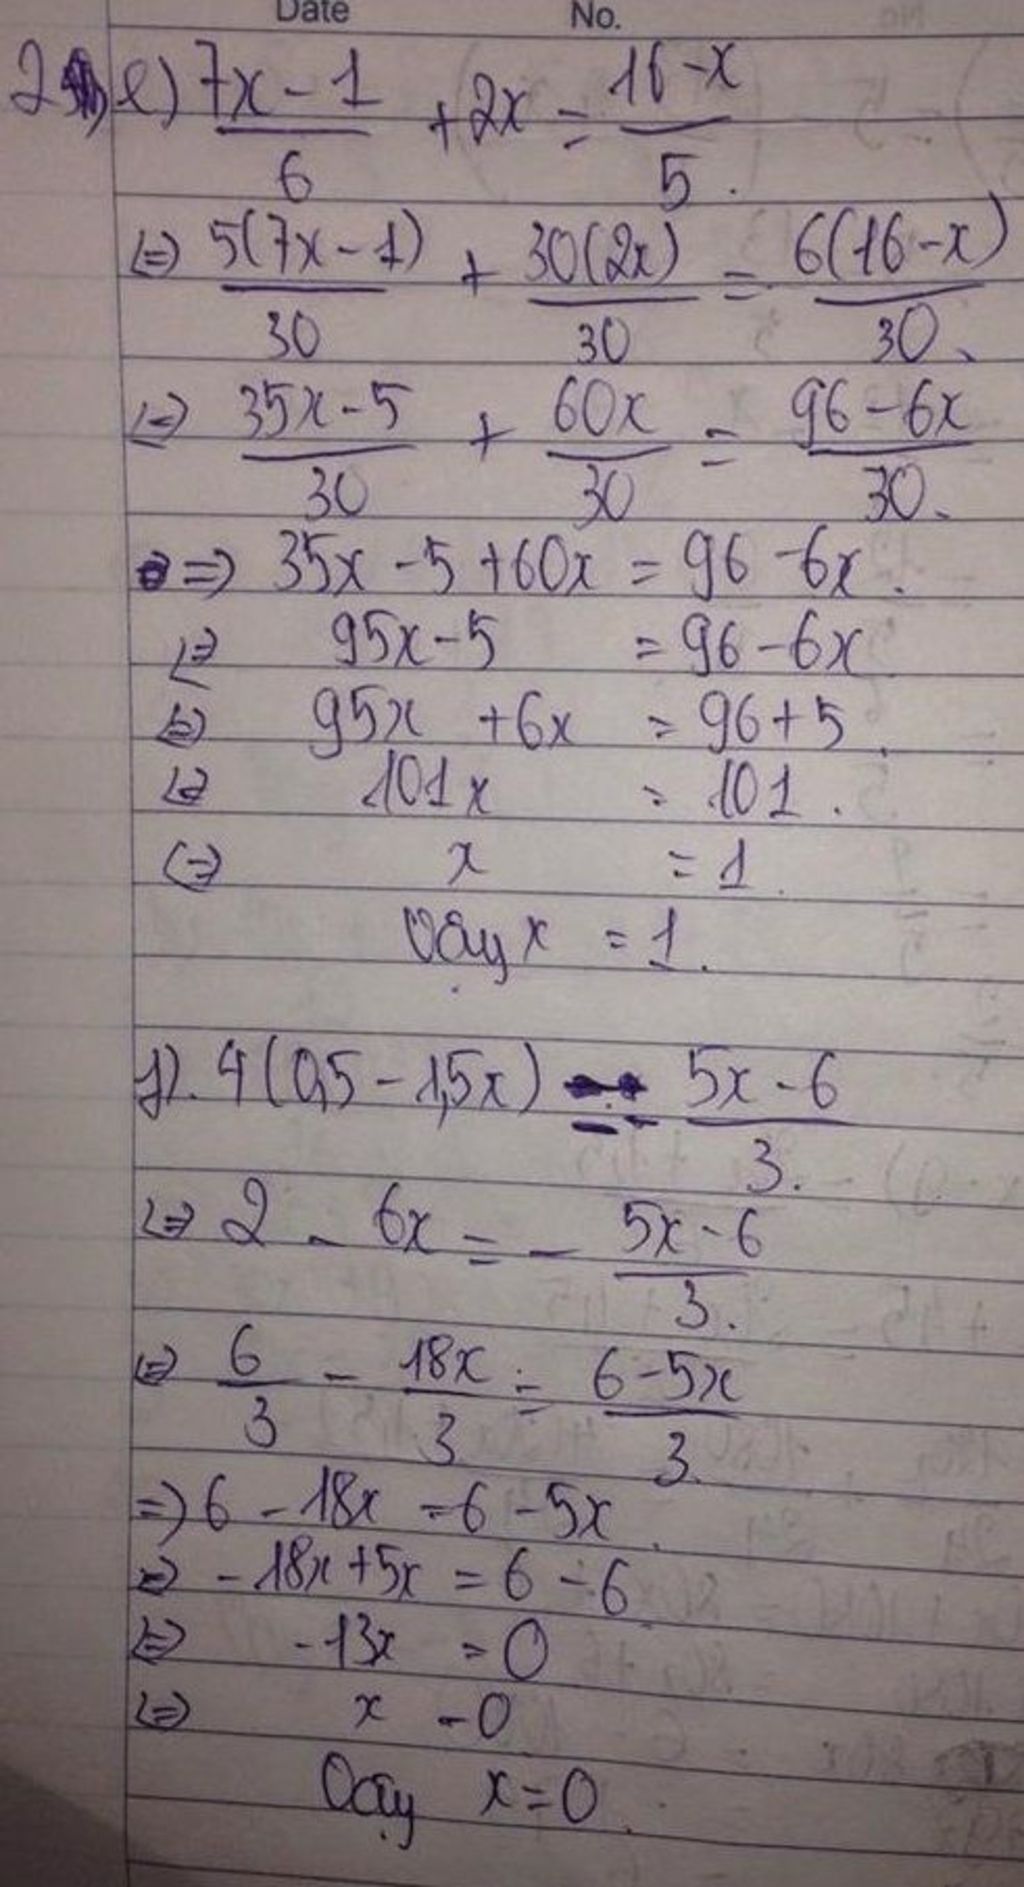 Date No.
2) e) 7x - 1 / 6 + 2x = 16 - x / 5.
<=> 5(7x - 1) / 30 + 30(2x) / 30 = 6(16 - x) / 30.
<=> 35x - 5 / 30 + 60x / 30 = 96 - 6x / 30.
=> 35x - 5 + 60x = 96 - 6x.
<=> 95x - 5 = 96 - 6x
<=> 95x + 6x = 96 + 5.
<=> 101x = 101.
<=> x = 1.
Vậy x = 1.
f). 4(0,5 - 1,5x) = - 5x - 6 / 3.
<=> 2 - 6x = - 5x - 6 / 3.
<=> 6 / 3 - 18x / 3 = 6 - 5x / 3.
=> 6 - 18x = 6 - 5x.
<=> - 18x + 5x = 6 - 6
<=> - 13x = 0
<=> x = 0
Vậy x = 0.